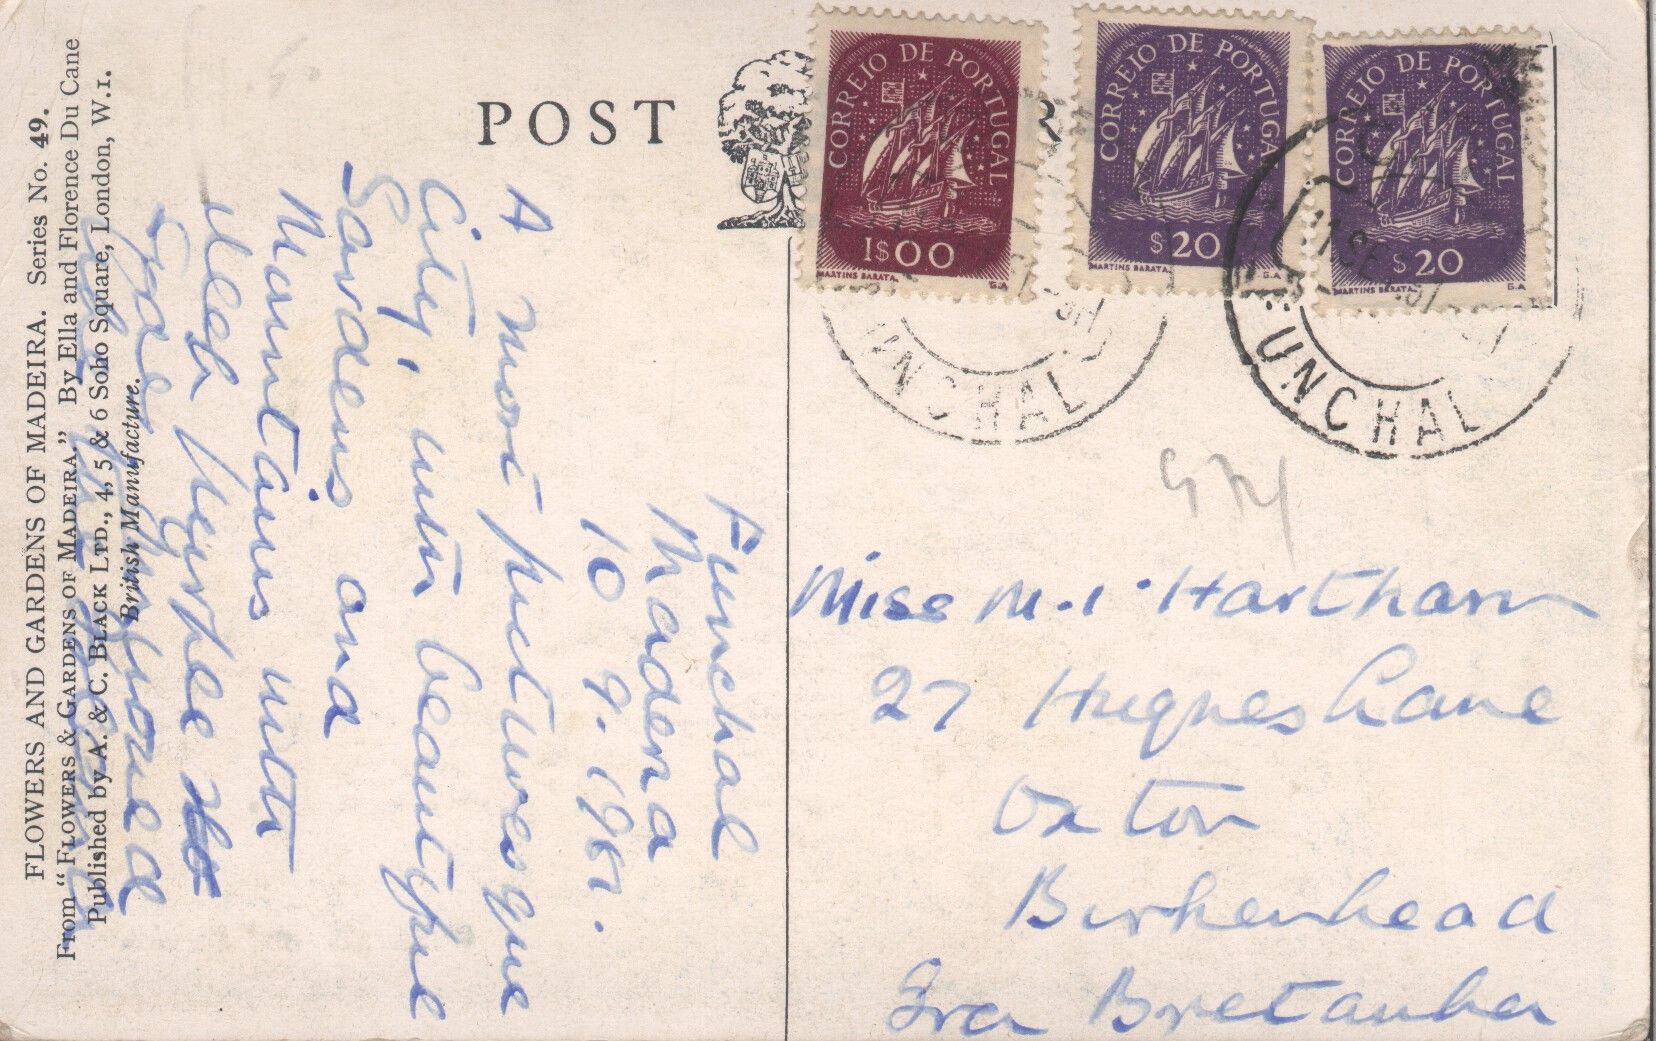 FLOWERS AND GARDENS OF MADEIRA. Series No. 49.
From "FLOWERS & GARDENS OF MADEIRA." By Ella and Florence Du Cane
Published by A. & C. BLACK LTD., 4, 5 & 6 Soho Square, London, W.1.
British Manufacture.
POST
R
CORREIO DE PORTUGAL
1$00
MARTINS BARATA.
G.A
CORREIO DE PORTUGAL
$20
MARTINS BARATA.
G.A.
CORREIO DE PORTUGAL
$20
MARTINS BARATA.
G.A
UNCHAL
11 SE
FUNCHAL
Funchal
Madeira
10 9. 196
A most picturesque
City, with beautiful
Gardens and
Mountains with
deep purple
Miss M. I. Hartham
27 Hughes Lane
Oxton
Birkenhead
Gra Bretanha